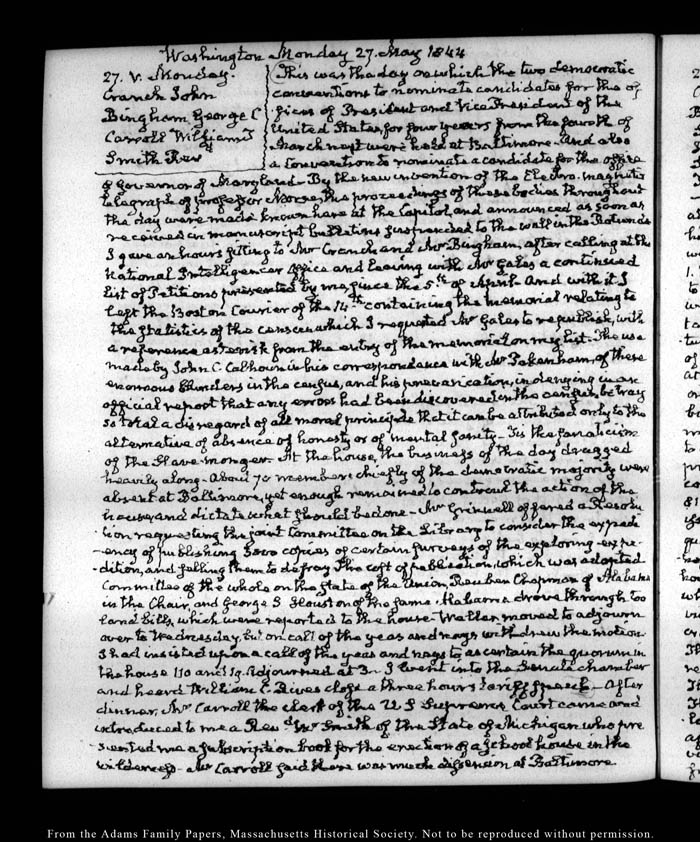 Washington Monday 27. May 1844
27. V. Monday.
Cranch John
Bingham George C
Carroll William T
Smith Revd
This was the day on which the two democratic
conventions to nominate candidates for the of-
fices of President and Vice President of the
United States, for four years from the fourth of
March next were held at Baltimore. And also
a Convention to nominate a candidate for the office
of Governor of Maryland— By the new invention of the Electro-magnetic
telegraph of professor Morse, the proceedings of these bodies throughout
the day were made known here at the Capitol, and announced as soon as
received in manuscript bulletins suspended to the wall in the Rotunda
I gave an hour's sitting to Mr Cranch and Mr Bingham, after calling at the
National Intelligencer Office and leaving with Mr Gales a continued
list of Petitions presented by me, since the 5th of April. And with it I
left the Boston Courier of the 14th containing the memorial relating to
the statistics of the census which I requested Mr Gales to republish, with
a reference asterisk from the entry of the memorial on my list. The use
made by John C. Calhoun in his correspondence with Mr Pakenham, of these
enormous blunders in the census, and his prevarication, in denying in an
official report that any errors had been discovered in the census, betray
so total a disregard of all moral principle that it can be attributed only to the
alternative of absence of honesty or of mental sanity— Tis the fanaticism
of the Slave-monger— At the house, the business of the day dragged
heavily along— About 70 members chiefly of the democratic majority were
absent at Baltimore, yet enough remained to controul the action of the
house, and dictate what should be done— Mr Grinnell offered a Resolu-
tion requesting the joint Committee on the Library to consider the expedi-
-ency of publishing 5000 copies of certain surveys of the exploring-expe-
-dition, and selling them to defray the cost of publication, which was adopted.
Committee of the whole on the state of the Union, Reuben Chapman of Alabama
in the Chair, and George S Houston of the same Alabama drove through two
land bills, which were reported to the house— Weller moved to adjourn
over to Wednesday, but on call of the yeas and nays withdrew the motion.
I had insisted upon a call of the yeas and nays to ascertain the quorum in
the house 110 and 19. adjourned at 3— I went into the Senate chamber
and heard William C. Rives close a three hours tariff speech— After
dinner, Mr Carroll the clerk of the U S Supreme Court came and
introduced to me a Revd Mr Smith of the State of Michigan, who pre-
-sented me a subscription book for the erection of a school house in the
wilderness— Mr Carroll said there was much dissension at Baltimore.
From the Adams Family Papers, Massachusetts Historical Society. Not to be reproduced without permission.